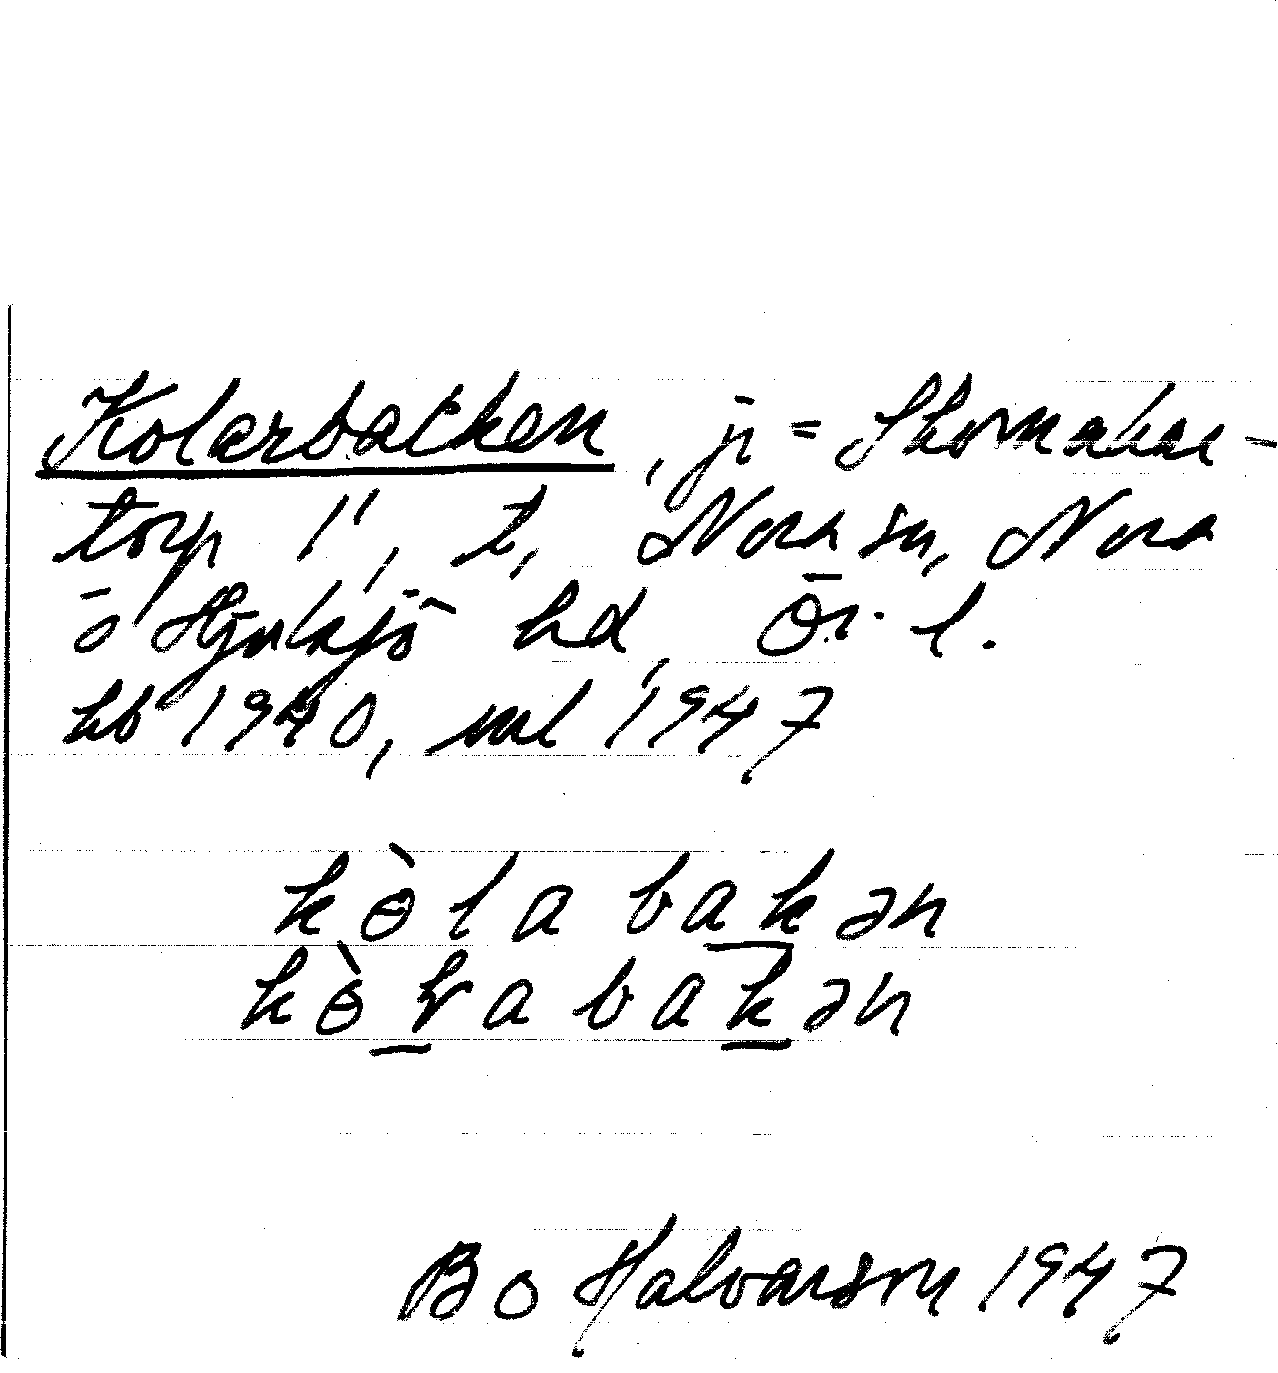 Kolarbacken, ji = Skomakar-
torp 1¹, t, Nora sn, Nora
o Hjulsjö hd, Ör. l.
kb 1940, uel 1947
kɵ̀labakən
kɵ̀ɽabakən
Bo Halvarson 1947